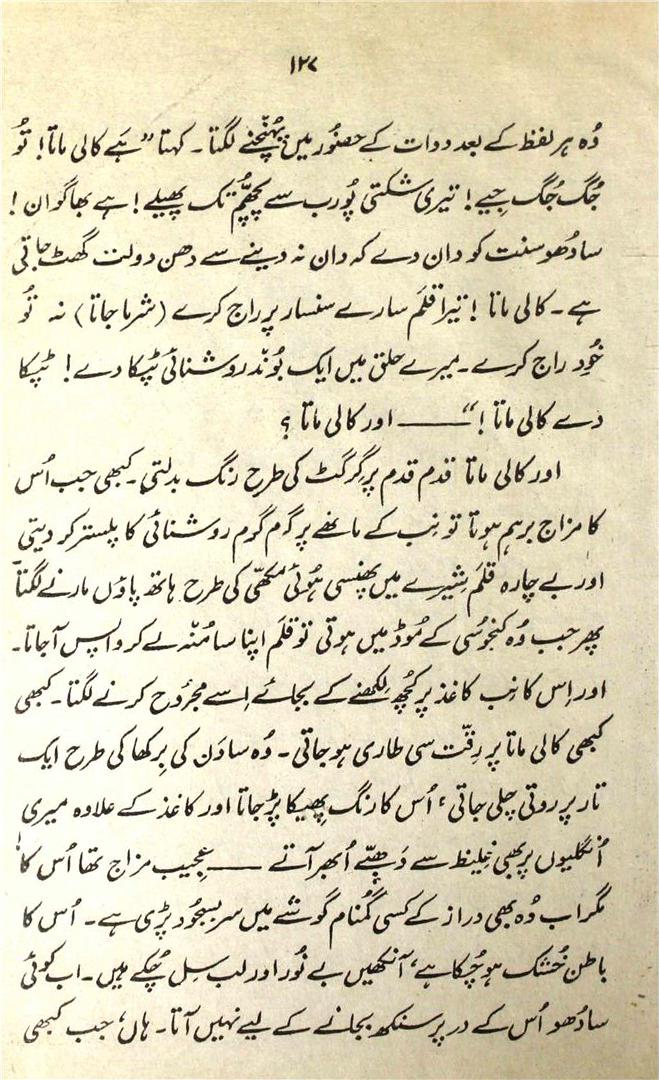 ۱۲۷
وُہ ہر لفظ کے بعد دوات کے حضُور میں پہُنچنے لگتا۔ کہتا ”ہے کالی ماتا! تُو
جُگ جُگ جیے! تیری شکتی پُورب سے پچھّم تک پھیلے! ہے بھاگوان!
سادُھو سنت کو دان دے کہ دان نہ دینے سے دھن دولت گھٹ جاتی
ہے۔ کالی ماتا! تیرا قلَم سارے سنسار پر راج کرے (شرما جاتا) نہ تُو
خوُد راج کرے۔ میرے حلق میں ایک بُوند روشنائی ٹپکا دے! ٹپکا
دے کالی ماتا!“ —— اور کالی ماتا؟
اور کالی ماتا قدم قدم پر گرگٹ کی طرح رنگ بدلتی۔ کبھی جب اُس
کا مزاج برہم ہوتا تو نِب کے ماتھے پر گرم گرم روشنائی کا پلستر کر دیتی
اور بے چارہ قلَم شِیرے میں پھنسی ہُوئی مکھّی کی طرح ہاتھ پاؤں مارنے لگتا
پھر جب وُہ کنجوُسی کے مُوڈ میں ہوتی تو قلَم اپنا سا مُنہ لے کر واپس آجاتا۔
اور اِس کا نِب کاغذ پر کُچھ لِکھنے کے بجائے اِسے مجرُوح کرنے لگتا۔ کبھی
کبھی کالی ماتا پر رِقّت سی طاری ہو جاتی۔ وُہ ساوَن کی بِرکھا کی طرح ایک
تار پر روتی چلی جاتی، اُس کا رنگ پِھیکا پڑ جاتا اور کاغذ کے علاوہ میری
اُنگلیوں پر بھی غلیظ سے دَھبّے اُبھر آتے —— عجیب مزاج تھا اُس کا!
مگر اب وُہ بھی دراز کے کسی گُمنام گوشے میں سر بسجُود پڑی ہے۔ اُس کا
باطن خُشک ہو چُکا ہے، آنکھیں بے نُور اور لب سِل چُکے ہیں۔ اب کوئی
سادُھو اُس کے در پر سنکھ بجانے کے لیے نہیں آتا۔ ہاں، جب کبھی